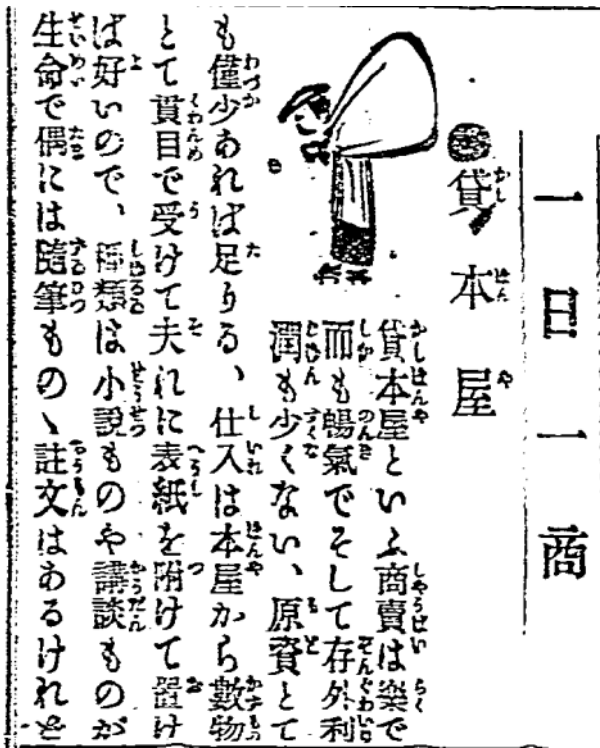 一日一商
貸本屋
貸本屋といふ商賣は樂で
而も暢氣でそして存外利
潤も少くない、原資とて
も僅少あれば足りる、仕入は本屋から數物
とて貫目で受けて夫れに表紙を附けて置け
ば好いので、種類は小説ものや講談ものが
生命で偶には隨筆もの、註文はあるけれど